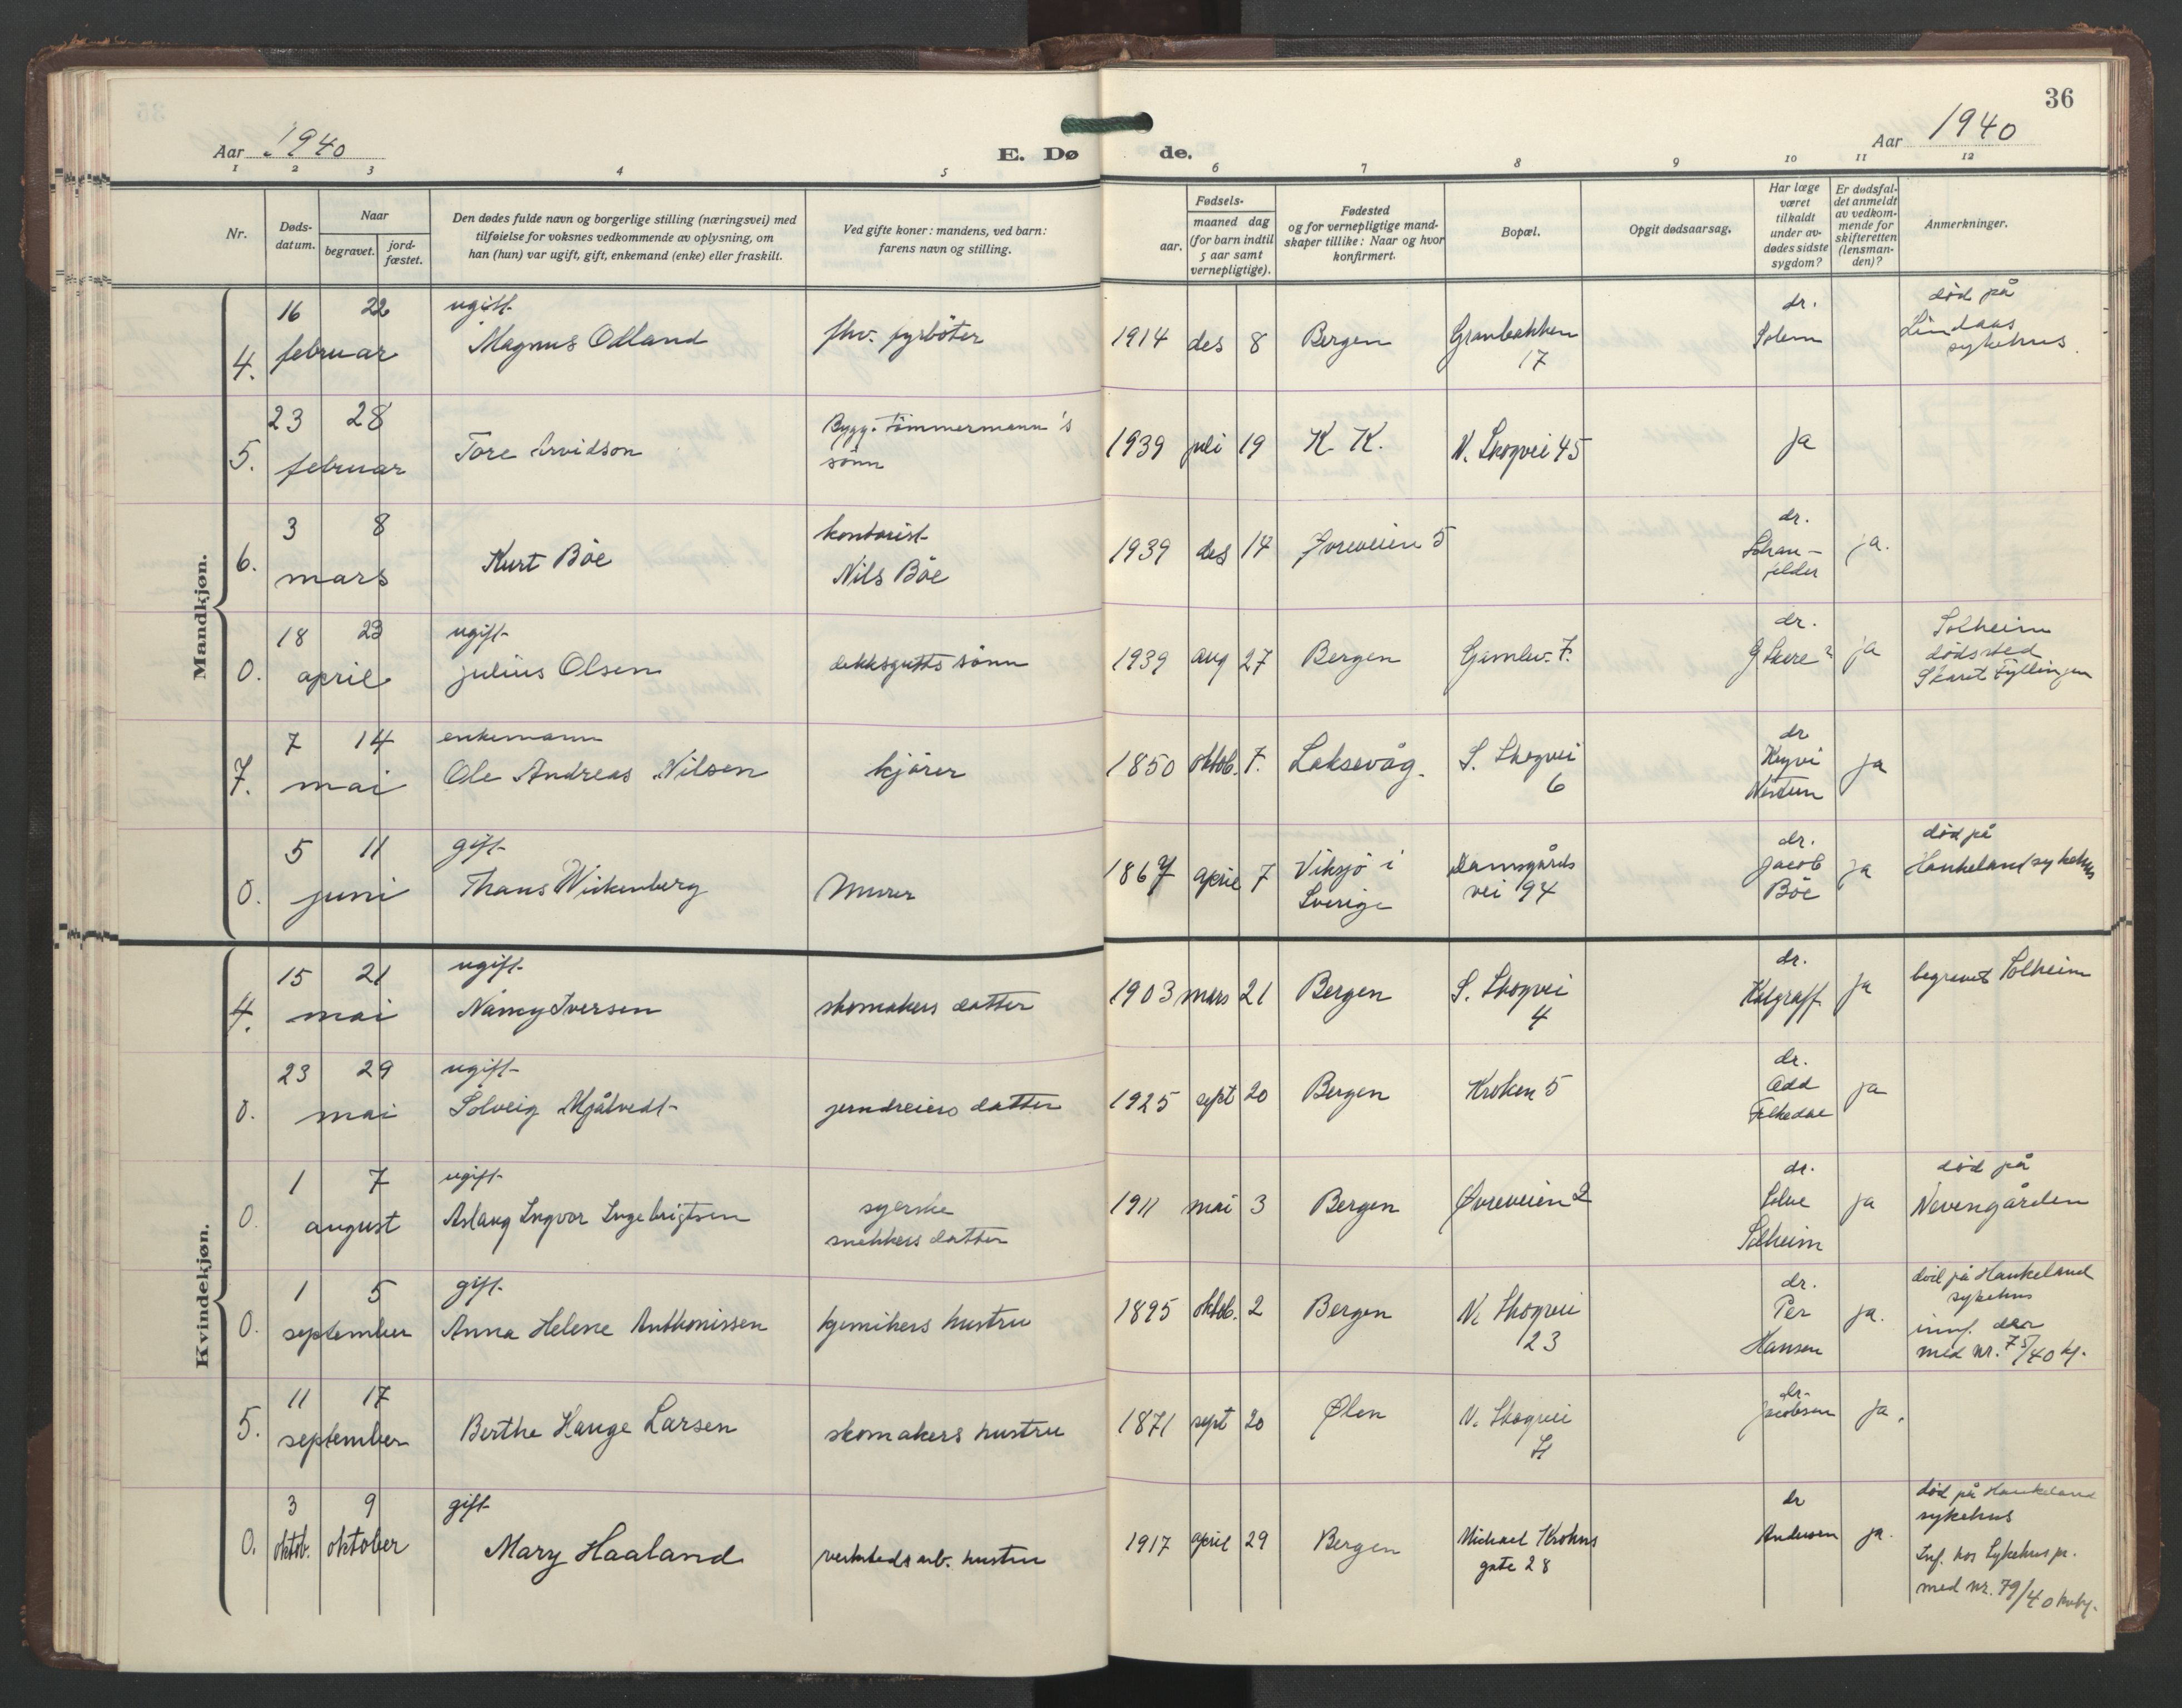 36
Aar 1940
E. Døde.
Aar 1940
1 2 3 4 5 6 7 8 9 10 11 12
Nr.
Døds-
datum.
Naar
begravet.
jord-
fæstet.
Den dødes fulde navn og borgerlige stilling (næringsvei) med
tilføielse for voksnes vedkommende av oplysning, om
han (hun) var ugift, gift, enkemand (enke) eller fraskilt.
Ved gifte koner: mandens, ved barn:
farens navn og stilling.
Fødsels-
aar.
maaned dag
(for barn indtil
5 aar samt
vernepligtige).
Fødested
og for vernepligtige mand-
skaper tillike: Naar og hvor
konfirmert.
Bopæl.
Opgit dødsaarsag.
Har læge
været
tilkaldt
under av-
dødes sidste
sygdom?
Er dødsfal-
det anmeldt
av vedkom-
mende for
skifteretten
(lensman-
den)?
Anmerkninger.
Mandkjøn.
4. 16 22 februar
ugift
Magnus Odland
fhv. fyrböter
1914 des 8 Bergen
Granbakken
17
dr.
Solem
död på
Lindaas
sykehus.
5. 23 28 februar
Tore Arvidson
Bygg. tömmermann's
sönn
1939 juli 19 K. K. N. Skogvei 45 ja
6. 3 8 mars
Kurt Böe
kontorist
Nils Böe
1939 des 14 Øvreveien 5
dr.
ja.
0. 18 23 april
ugift
julius Olsen
dekksgutts sönn
1939 aug 27 Bergen Gamlev. 7.
dr.
ja
Solheim
dödsted
Skaret Fyllingen
7. 7 14 mai
enkemann
Ole Andreas Nilsen
kjörer
1850 oktob. 7. Laksevåg.
S. Skogvei
6
dr
Nestun
ja
0. 5 11 juni
gift
Thaus Wickenberg
Murer
1867 april 7
Viksjö i
Sverige
Damsgårds
vei 94
dr.
Jacob
Böe
ja
död på
Haukeland sykehus
Kvindekjøn.
4. 15 21 mai
ugift
Nancy Iversen
skomakers datter
1903 mars 21 Bergen
S. Skogvei
4
dr.
Kalgraff
ja
begravet Solheim
0. 23 29 mai
ugift
Solveig Mjåtvedt
jerndreiers datter
1925 sept 20 Bergen Kroken 5
dr.
Odd
Falkedal
ja
0. 1 7 august
ugift
Aslaug Ingvor Ingebrigtsen
syerske
snekkers datter
1911 mai 3 Bergen Øvreveien 2
dr.
Solve
Solheim
ja
död på
Nevengården
0. 1 5 september
gift
Anna Helene Anthonissen
kjemikers hustru
1895 oktob. 2 Bergen
N. Skogvei
23
dr.
Per
Hansen
ja.
död på Haukeland
sykehus
innf. der
med nr. 75/40 kj.
5. 11 17 september
Berthe Hauge Larsen
skomakers hustru
1871 sept 20 Ølen
N. Skogvei
dr.
Jacobsen
ja.
0. 3 oktob. 9 oktober
gift
Mary Haaland
verksteds arb. hustru
1917 april 29 Bergen
Michael Krohns
gate 28
dr
Andersen
ja.
död på Haukeland
sykehus
Inf. hos Sykehus pr.
med nr. 79/40 kvkj.